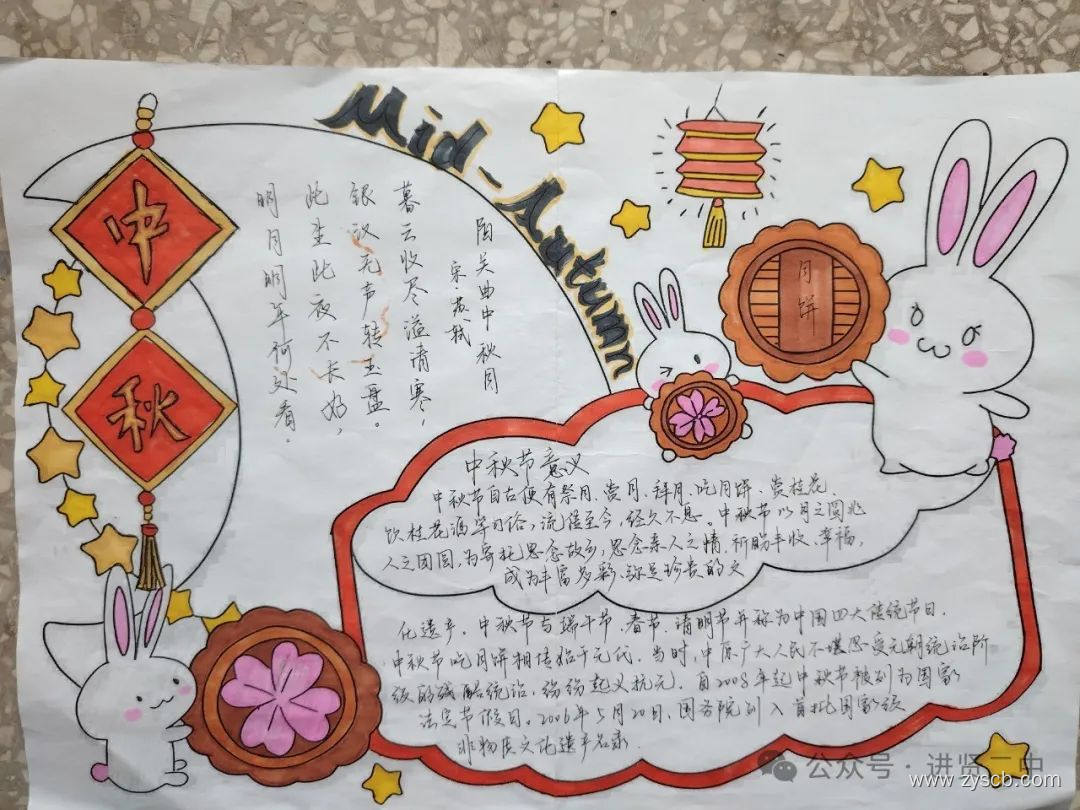 Mid-Autumn
中
秋
阳关曲中秋月
宋苏轼
暮云收尽溢清寒，
银汉无声转玉盘。
此生此夜不长好，
明月明年何处看。
月饼
中秋节意义
中秋节自古便有祭月、赏月、拜月、吃月饼、赏桂花、
饮桂花酒等习俗，流传至今，经久不息。中秋节以月之圆兆
人之团圆，为寄托思念故乡，思念亲人之情，祈盼丰收、幸福，
成为丰富多彩、弥足珍贵的文
化遗产。中秋节与端午节、春节、清明节并称为中国四大传统节日。
中秋节吃月饼相传始于元代。当时，中原广大人民不堪忍受元朝统治阶
级的残酷统治，纷纷起义抗元。自2008年起中秋节被列为国家
法定节假日。2006年5月20日，国务院列入首批国家级
非物质文化遗产名录.
公众号·进贤二中
www.zyscb.com